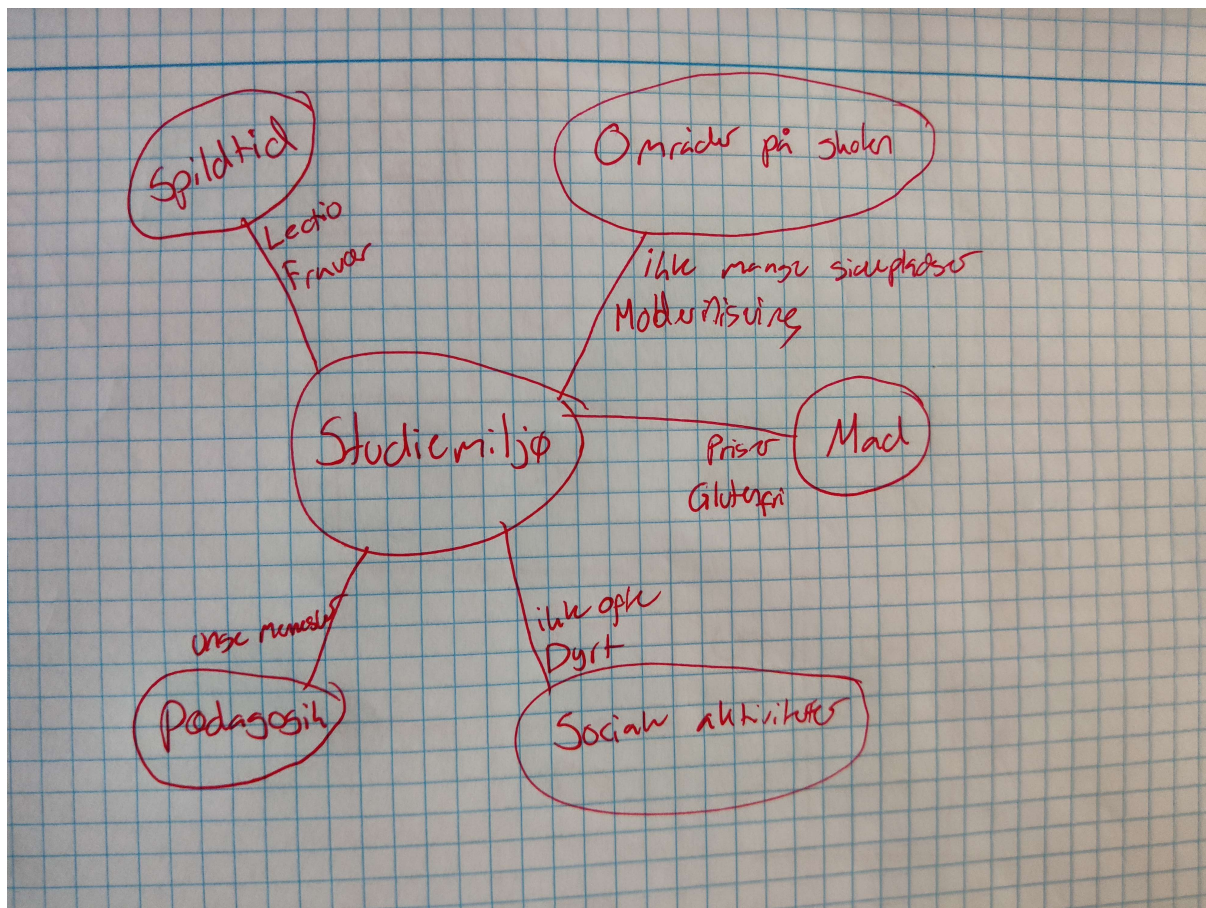 Spildtid
Lectio
Fravær
Områder på skolen
ikke mange siddepladser
Modernisering
Studiemiljø
Priser
Glutenfri
Mad
unge mennesker
Pædagogik
ikke ofte
Dyrt
Sociale aktiviteter